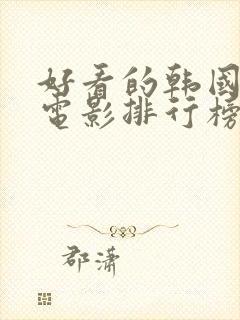 好看的韩国
电影排行榜
郡潇